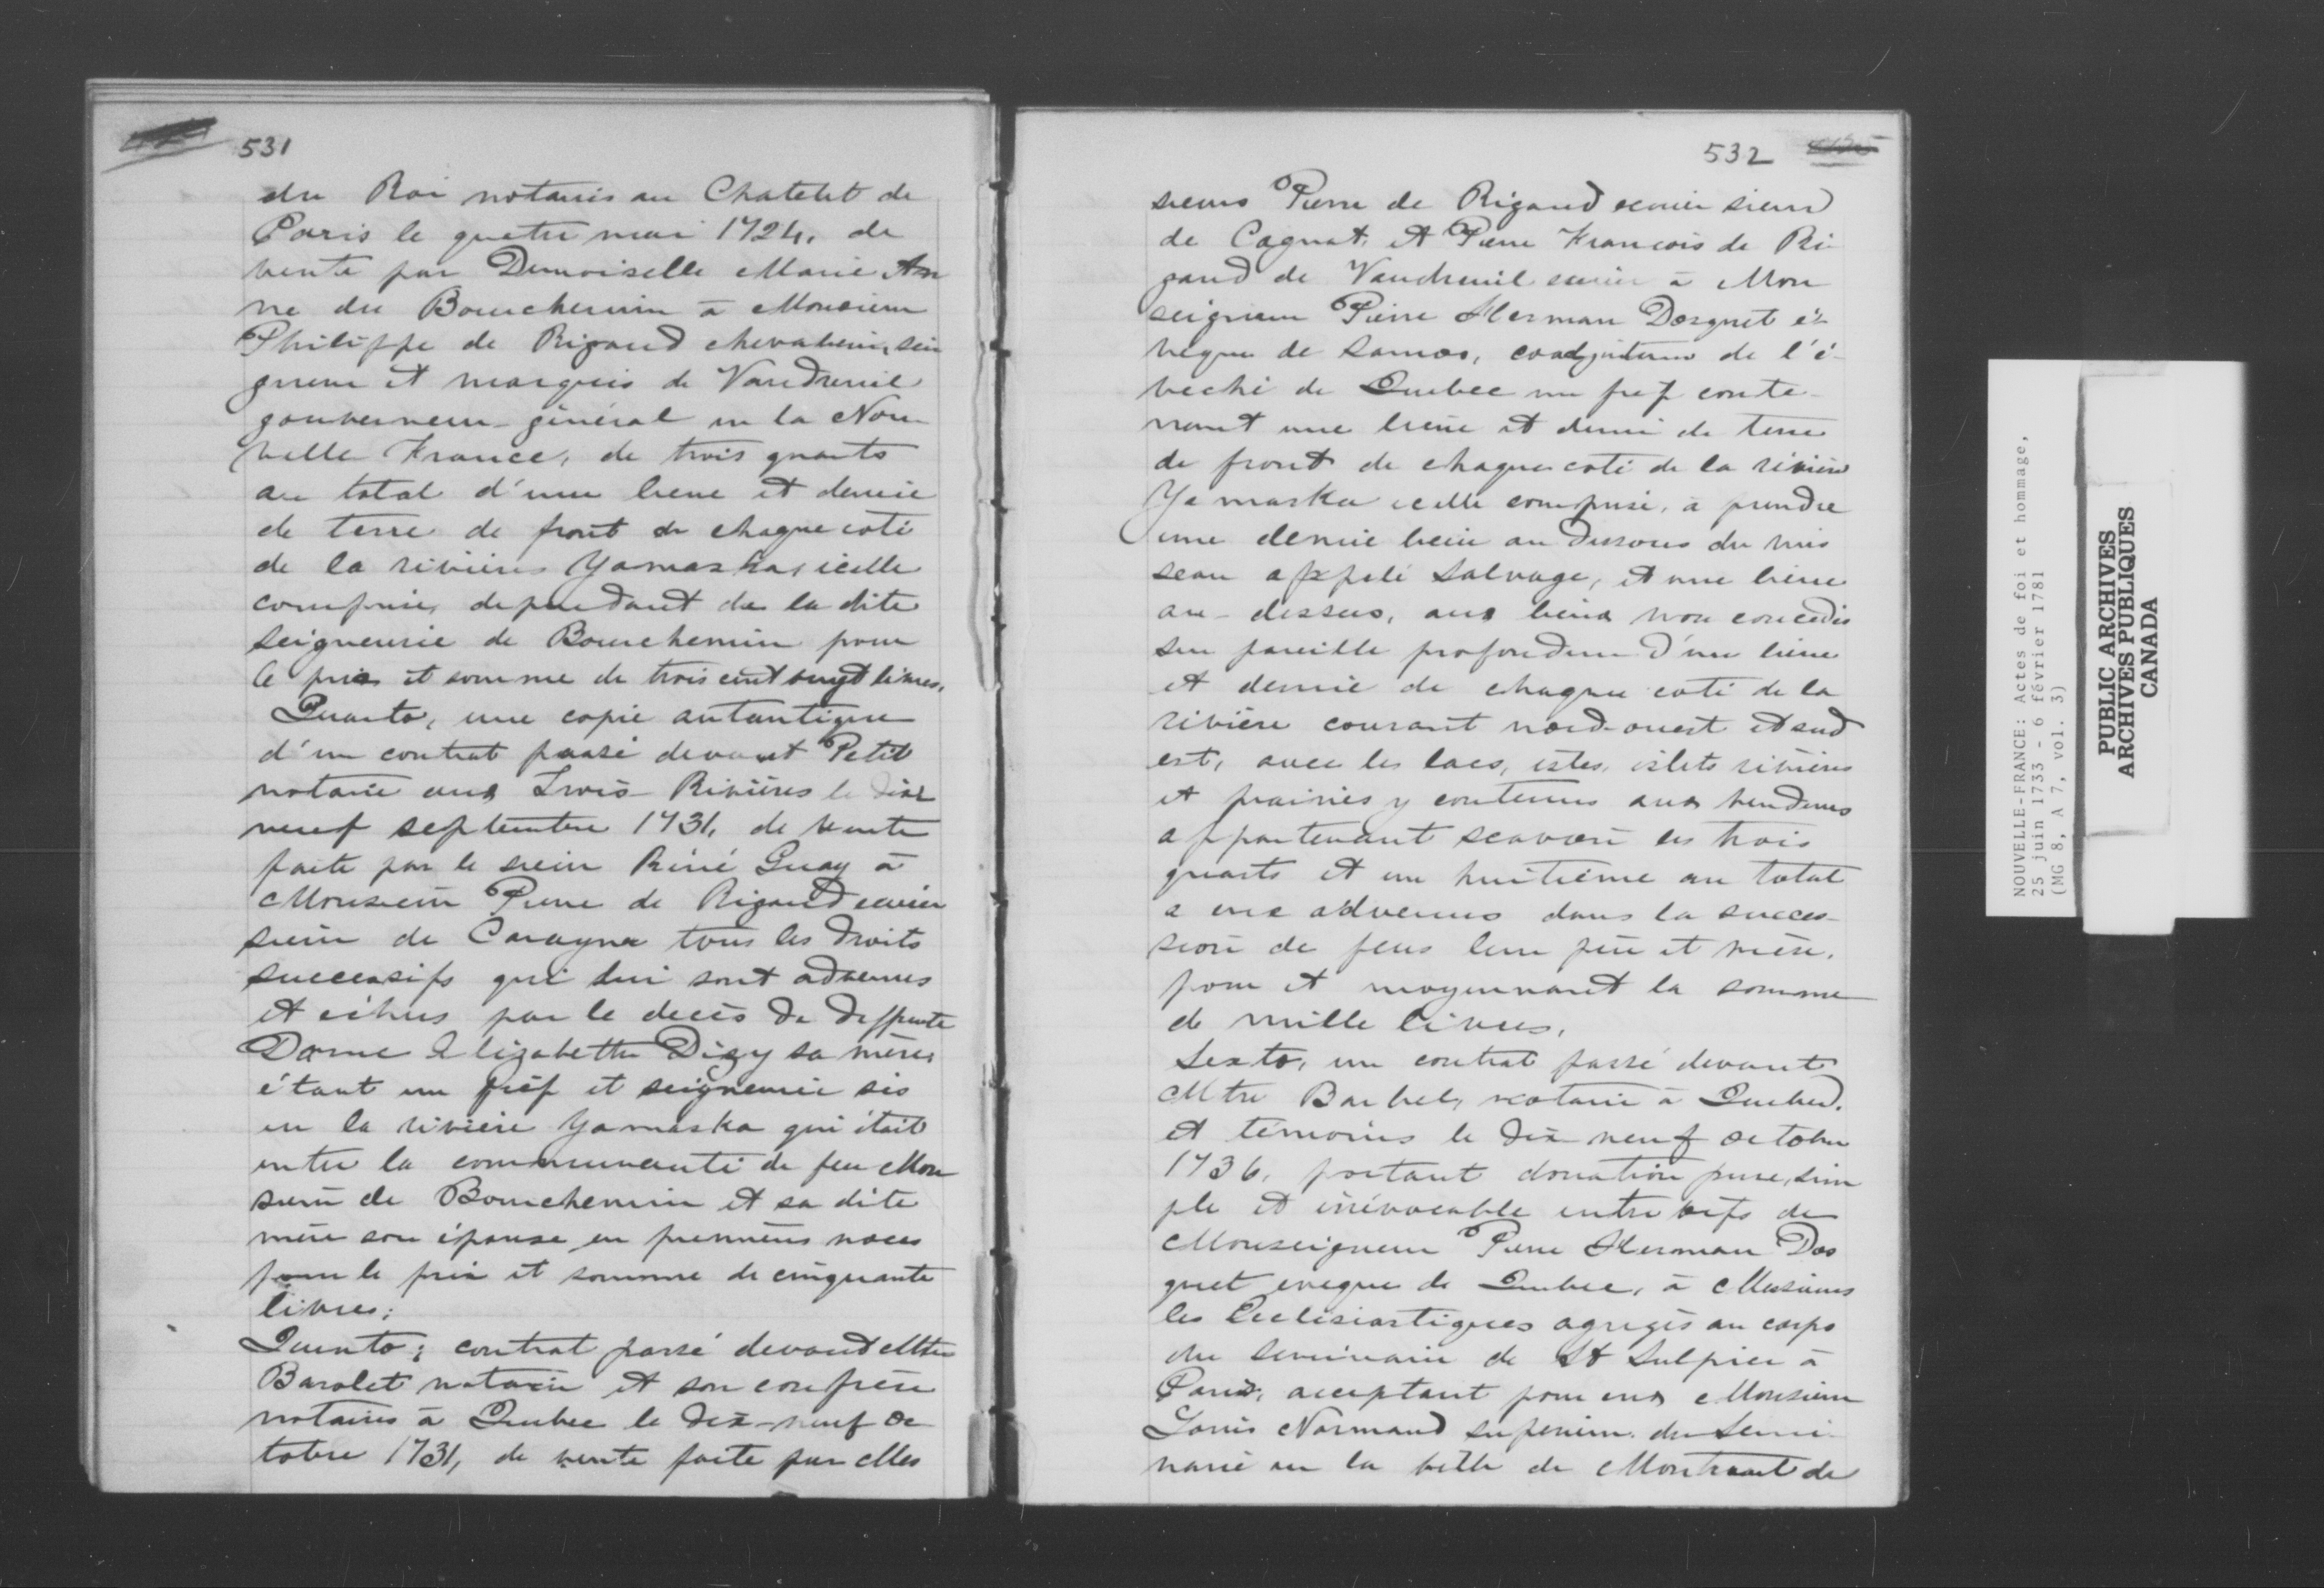 531
du Roi notaires au Chatelet de
Paris le quatre mai 1724, de
vente par Demoiselle Marie An
ne du Bourchemin à Monsieur
Philippe de Rigaud chevalier, sei
gneur et marquis de Vaudreuil
gouverneur-général en la Nou-
velle France, de trois quarts
au total d'une lieue et demie
de terre de front de chaque coté
de la rivière Yamaska, icelle
comprise, dependant de la dite
seigneurie de Bourchemin pour
le prix et somme de trois cent vingt livres.
Quarto, une copie autantique
d'un contrat passé devant Petit
notaire aux Trois-Rivières le dix
neuf septembre 1731, de vente
faite par le sieur Réné Guay à
Monsieur Pierre de Rigaud ecuier
sieur de Cavagna tous les droits
successifs qui lui sont advenus
et échus par le decès de deffunte
Dame Elizabeth Dizy sa mère,
étant un fief et seigneurie sis
en la rivière Yamaska qui était
entre la communauté de feu Mon
sieur de Bourchemin et sa dite
mère son épouse en premières noces
pour le prix et somme de cinquante
livres;
Quinto; contrat passé devand Mtre
Barolet notaire et son confrère
notaires à Quebec le dix-neuf oc
tobre 1731, de vente faite par Mes
532
sieurs Pierre de Rigaud ecuier sieur
de Cagnat, et Pierre Francois de Ri
gaud de Vaudreuil ecuier à Mon
seigneur Pierre Herman Dosquet é-
vêque de Samos, coadjuteur de l'é-
veché de Quebec un fief conte-
nant une lieue et demie de terre
de front de chaque coté de la rivière
Yamaska icelle comprise, à prendre
une demie lieue au dessous du ruis
seau appelé Salvage, et une lieue
au-dessus, aux lieux non concedés
sur pareille profondeur d'une lieue
et demie de chaque coté de la
rivière courant nord-ouest et sud
est, avec les lacs, istes, islets rivières
et prairies y contenus aux vendeurs
appartenant scavoir les trois
quarts et un huitième au total
a eux advenus dans la succes-
sion de feus leur père et mère.
pour et moyennant la somme
de mille livres.
Sexto, un contrat passé devant
Mtre Barbel, notaire à Quebec.
et témoins le dix neuf octobre
1736, portant donation pure, sim
ple et irrévocable entre vifs de
Monseigneur Pierre Herman Dos
quet eveque de Quebec, à Messieurs
les Ecclésiastiques agrégés au corps
du seminaire de St Sulpice à
Paris, acceptant pour eux Monsieur
Louis Normand superieur du Semi-
naire en la ville de Montreal de
NOUVELLE-FRANCE: Actes de foi et hommage,
25 juin 1733 - 6 février 1781
(MG 8, A 7, vol. 3)
PUBLIC ARCHIVES
ARCHIVES PUBLIQUES
CANADA